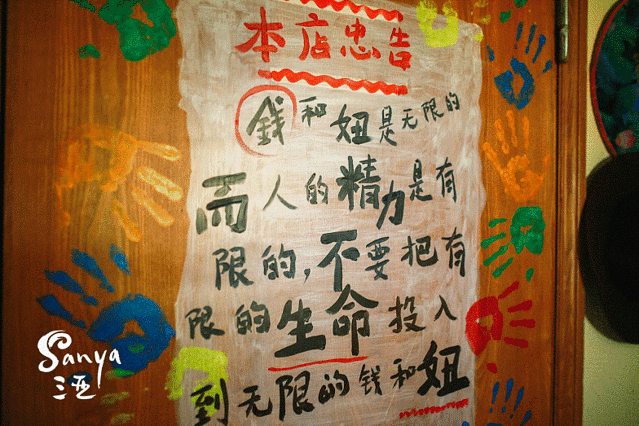 本店忠告
钱和妞是无限的
而人的精力是有
限的,不要把有
限的生命投入
到无限的钱和妞
Sanya
三亜